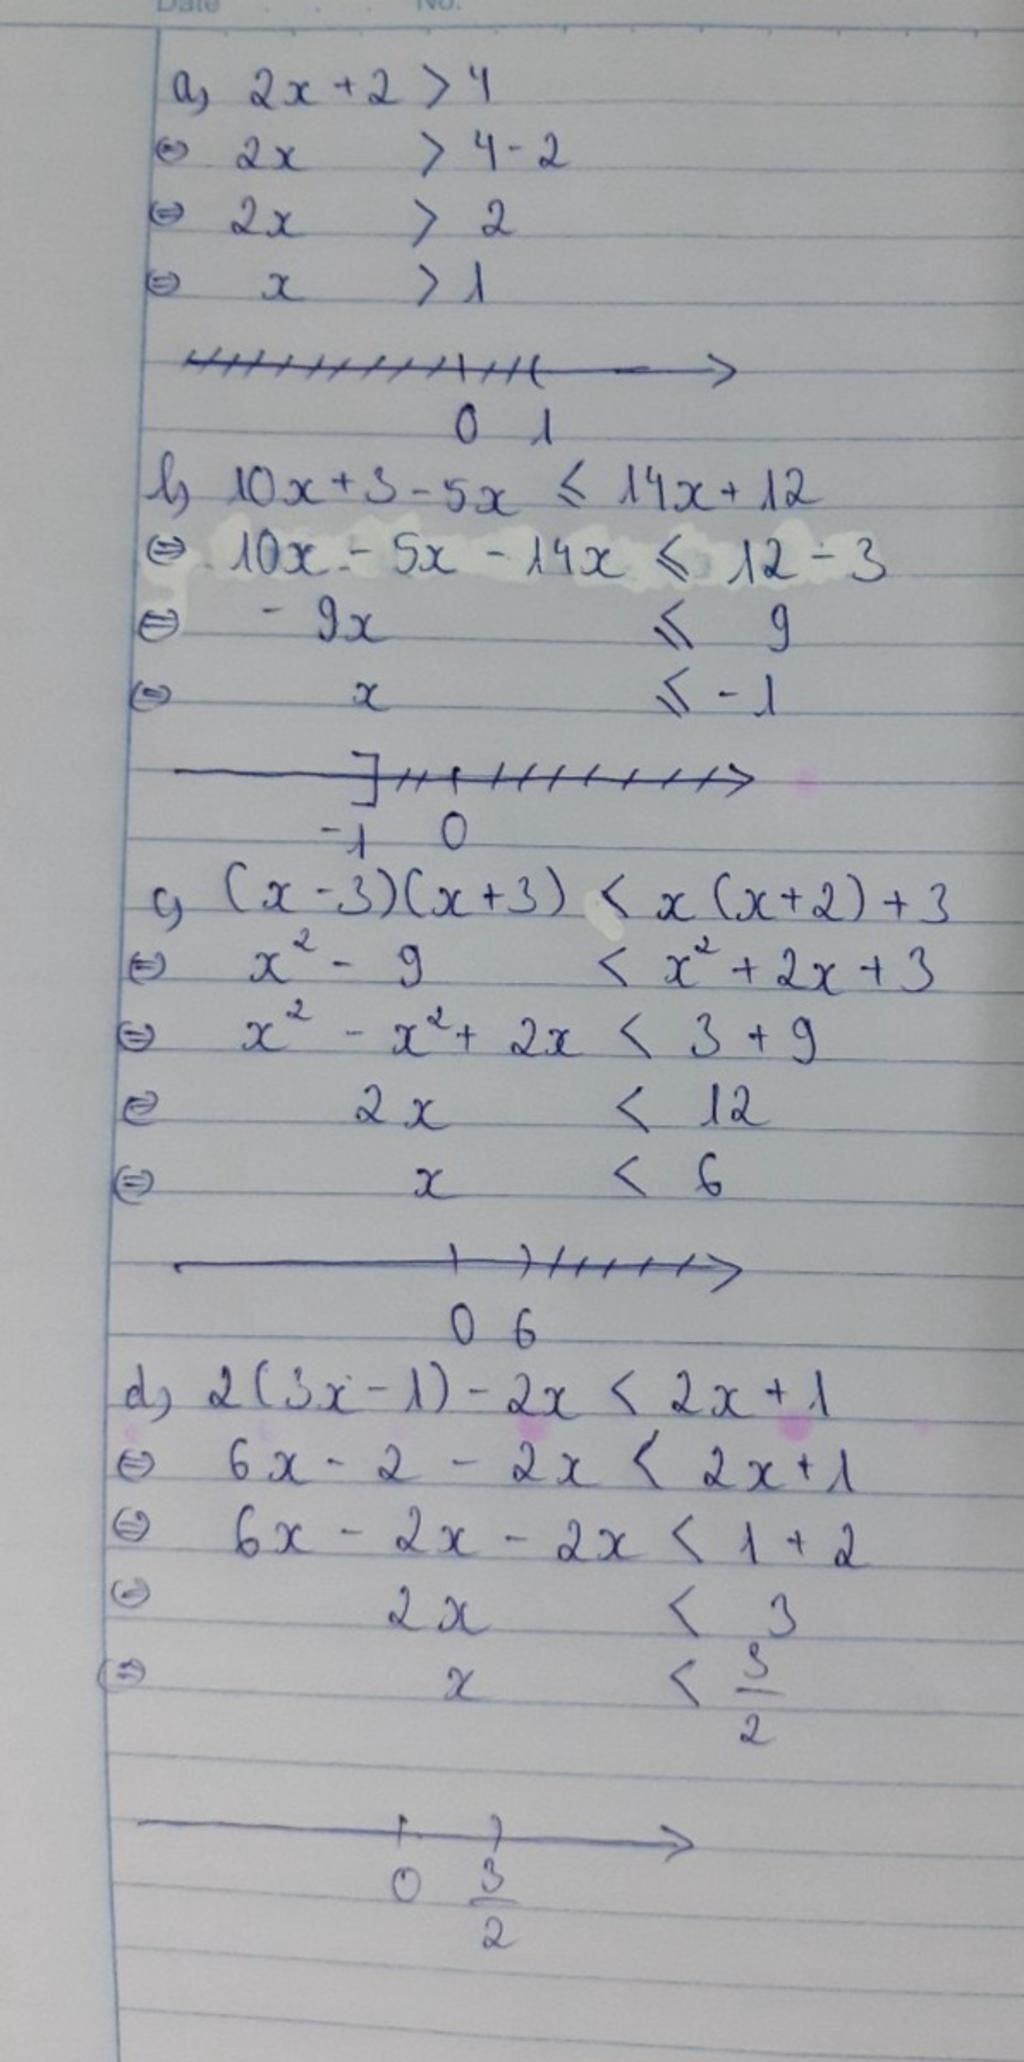 Date No.
a, 2x + 2 > 4
⇔ 2x > 4 - 2
⇔ 2x > 2
⇔ x > 1
0 1
b, 10x + 3 - 5x ≤ 14x + 12
⇔ 10x - 5x - 14x ≤ 12 - 3
⇔ - 9x ≤ 9
⇔ x ≤ -1
-1 0
c, (x - 3)(x + 3) < x (x + 2) + 3
⇔ x² - 9 < x² + 2x + 3
⇔ x² - x² + 2x < 3 + 9
⇔ 2x < 12
⇔ x < 6
0 6
d, 2(3x - 1) - 2x < 2x + 1
⇔ 6x - 2 - 2x < 2x + 1
⇔ 6x - 2x - 2x < 1 + 2
⇔ 2x < 3
⇔ x < 3/2
0 3/2